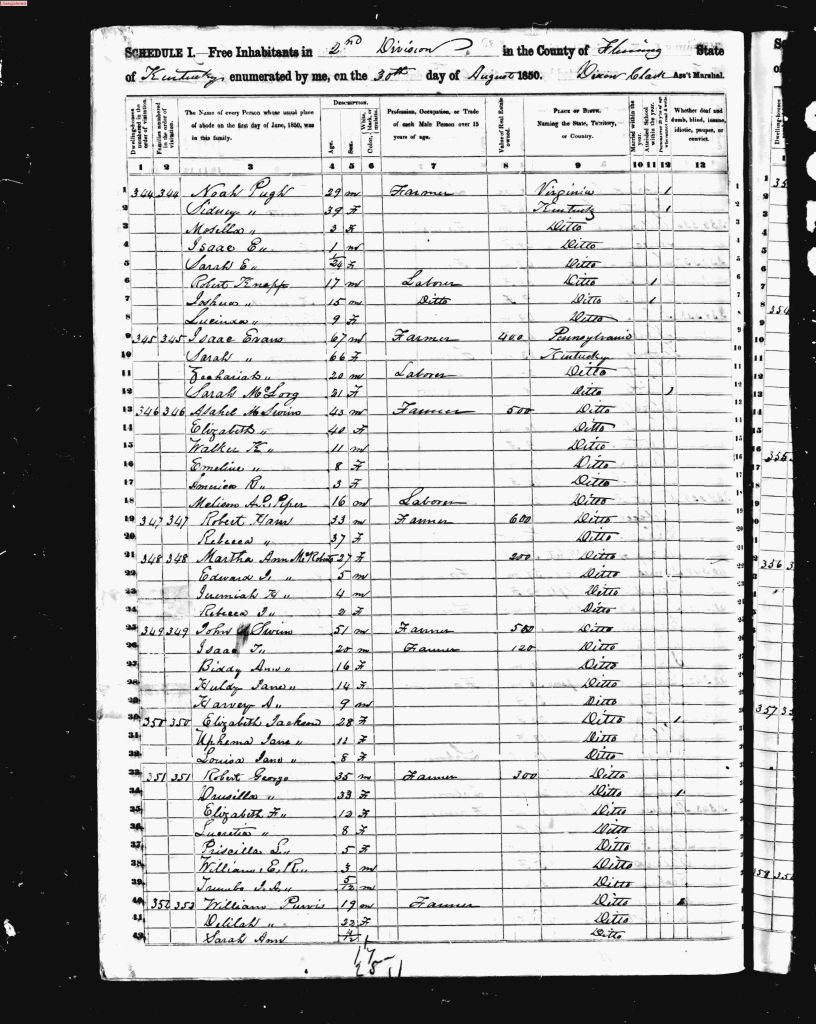 SCHEDULE I.—Free Inhabitants in 2nd Division in the County of Fleming State
of Kentucky enumerated by me, on the 30th day of August 1850. Dixon Clark Ass't Marshal.
Dwelling-houses numbered in the order of visitation. Families numbered in the order of visitation. The Name of every Person whose usual place of abode on the first day of June, 1850, was in this family. DESCRIPTION. Age. Sex. Color, White, black, or mulatto. Profession, Occupation, or Trade of each Male Person over 15 years of age. Value of Real Estate owned. PLACE OF BIRTH. Naming the State, Territory, or Country. Married within the year. Attended School within the year. Whether deaf and dumb, blind, insane, idiotic, pauper, or convict.
1 2 3 4 5 6 7 8 9 10 11 12 13
1 344 344 Noah Pugh 29 m Farmer Virginia 1 1
2 Sidney " 39 F Kentucky 1 2
3 Mosella " 3 F Ditto 3
4 Isaac E " 1 m Ditto 4
5 Sarah E " 1/24 F Ditto 5
6 Robert Knapp 17 m Laborer Ditto 1 6
7 Joshua " 15 m Ditto Ditto 1 7
8 Lucinda " 9 F Ditto 8
9 345 345 Isaac Evans 67 m Farmer 400 Pennsylvania 9
10 Sarah " 66 F Kentucky 10
11 Zachariah " 20 m Laborer Ditto 11
12 Sarah McLorg 21 F Ditto 1 12
13 346 346 Asahel McSwim 43 m Farmer 500 Ditto 13
14 Elizabeth " 40 F Ditto 14
15 Walker K " 11 m Ditto 15
16 Emeline " 8 F Ditto 16
17 America R " 3 F Ditto 17
18 Piper 16 m Laborer Ditto 18
19 347 347 Robert Ham 33 m Farmer 600 Ditto 19
20 Rebecca " 37 F Ditto 20
21 348 348 Martha Ann McRoberts 27 F 200 Ditto 21
22 Edward " 5 m Ditto 22
23 Jeremiah H " 4 m Ditto 23
24 Rebecca J " 2 F Ditto 24
25 349 349 John Swim 51 m Farmer 500 Ditto 25
26 Isaac T " 20 m Farmer 120 Ditto 26
27 Biddy Ann " 16 F Ditto 27
28 Huldy Jane " 14 F Ditto 28
29 Harvey A " 9 m Ditto 29
30 350 350 Elizabeth Jackson 28 F Ditto 1 30
31 Uphema Jane " 11 F Ditto 31
32 Louisa Jane " 8 F Ditto 32
33 351 351 Robert George 35 m Farmer 300 Ditto 33
34 Drusilla " 33 F Ditto 1 34
35 Elizabeth F " 12 F Ditto 35
36 Lucretia " 8 F Ditto 36
37 Priscilla L " 5 F Ditto 37
38 William E. R " 3 m Ditto 38
39 Trumbo I. A " 5/12 m Ditto 39
40 352 352 William Purvis 19 m Farmer Ditto 40
41 Delilah " 22 F Ditto 41
42 Sarah Ann Ditto 42
17
25
11